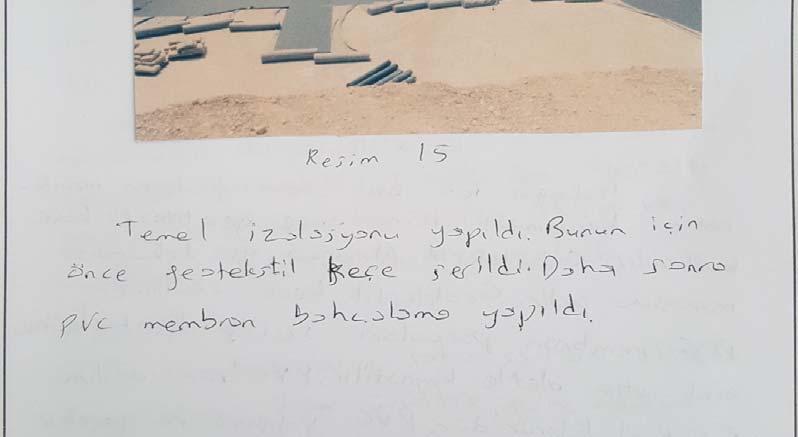 Resim 15
Temel izolasyonu yapıldı. Bunun için
önce geotekstil keçe serildi. Daha sonra
PVC membran bohçalama yapıldı.